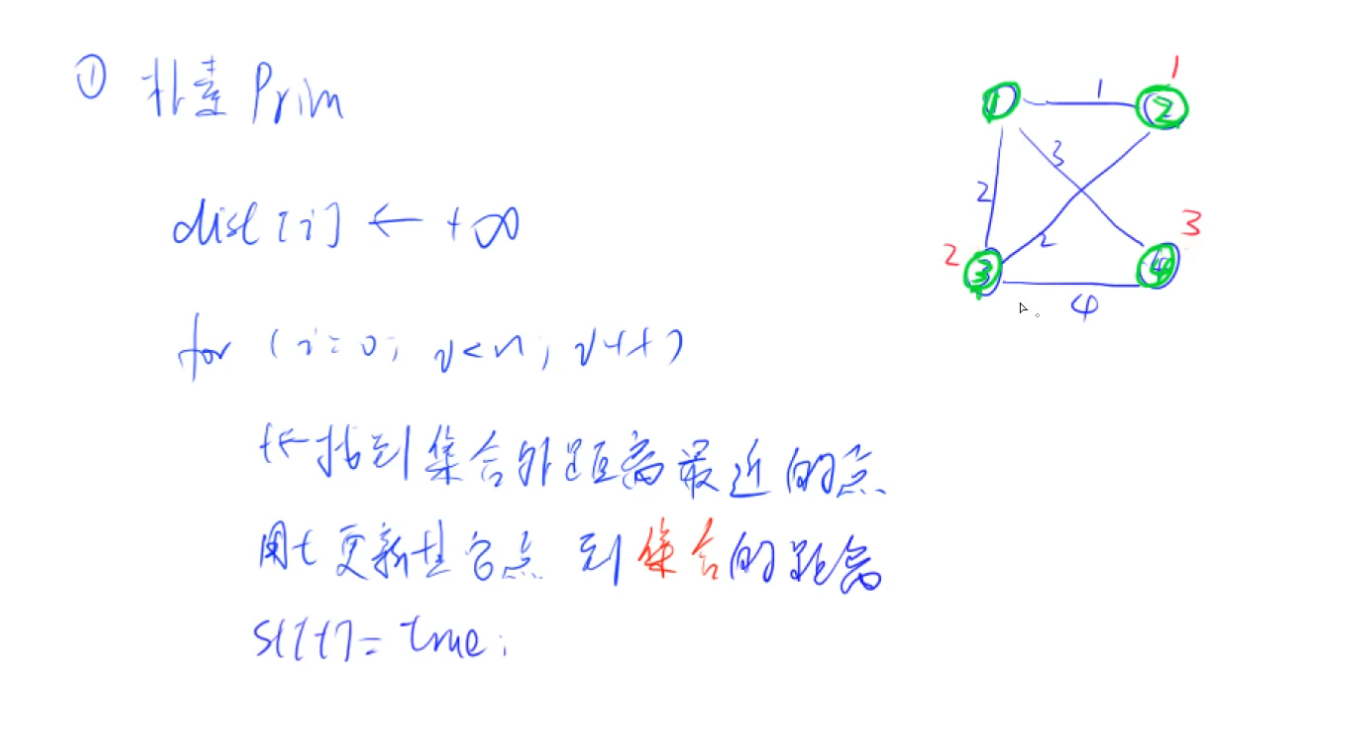 ① 朴素Prim
dist[i] ← +∞
for (i=0; i<n; i++)
t←找到集合外距离最近的点
用t更新其它点 到集合的距离
st[t]=true;
1
1
1
2
3
2
3
2
2
3
4
4